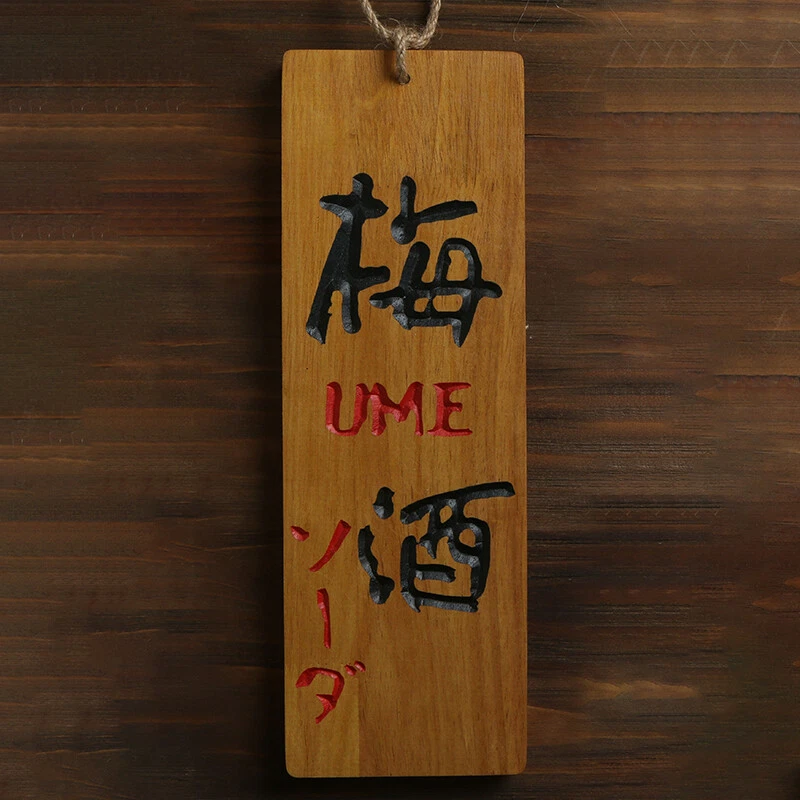 梅
UME
酒
ソーダ